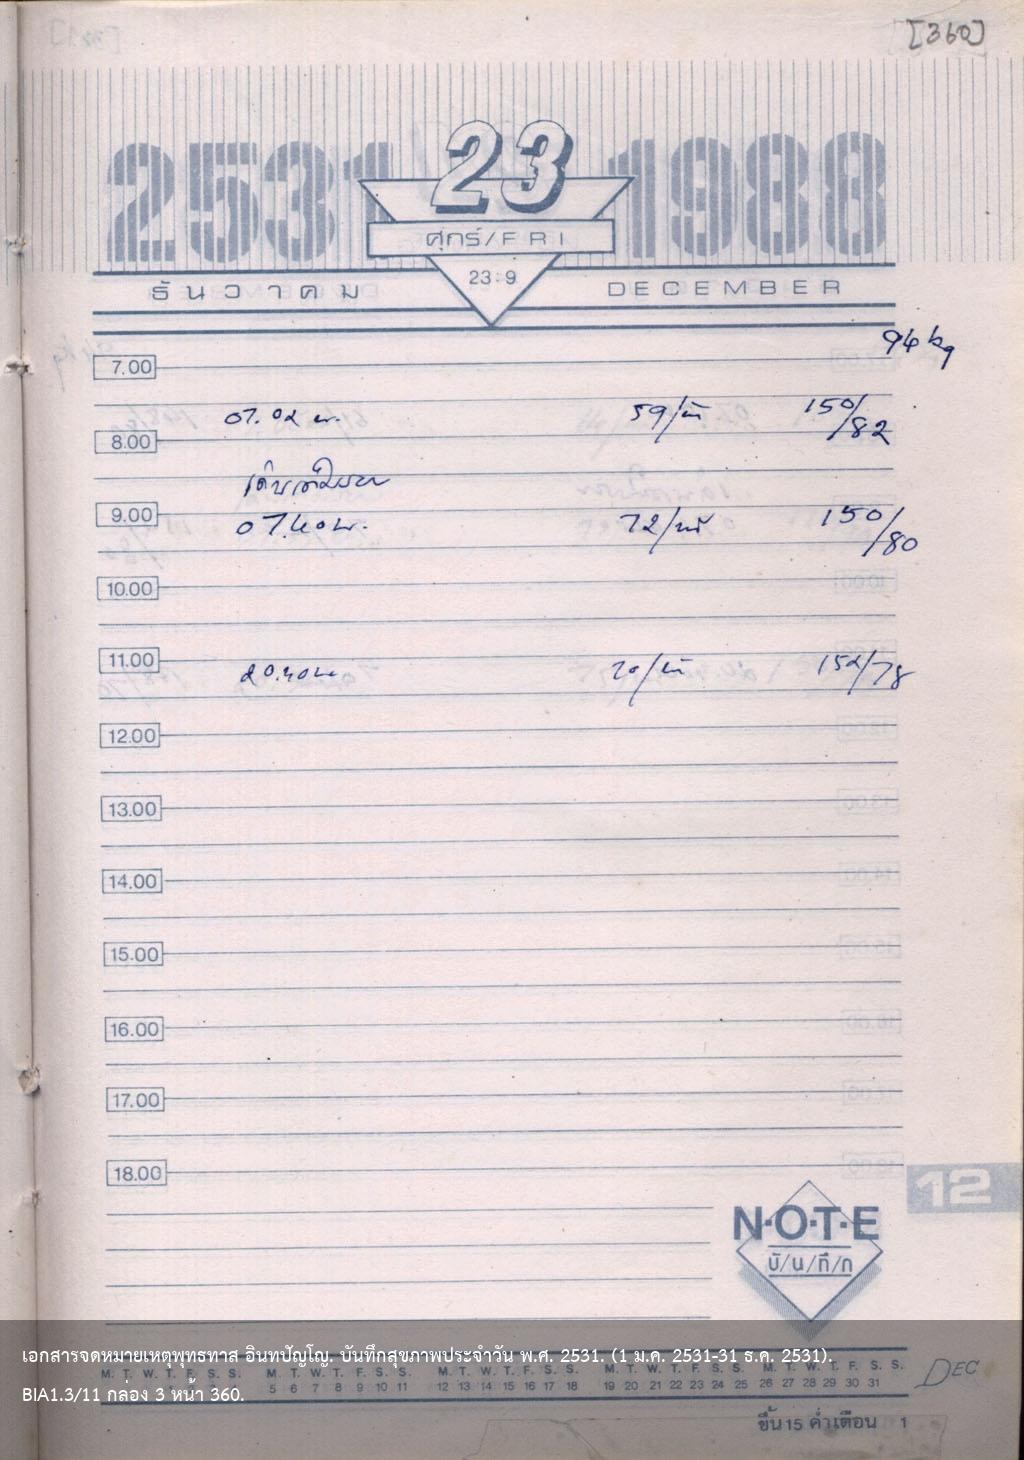 [360]
2531 23 1988
ศุกร์/FRI
ธันวาคม 23:9 DECEMBER
94 kg
7.00
07.02 น. 59/นาที 150/82
8.00
9.00
07.40 น. 72/นาที 150/80
10.00
11.00
20.40 น. 70/นาที 152/78
12.00
13.00
14.00
15.00
16.00
17.00
18.00
12
N·O·T·E
บั/น/ทึ/ก
เอกสารจดหมายเหตุพุทธทาส อินทปัญโญ. บันทึกสุขภาพประจำวัน พ.ศ. 2531. (1 ม.ค. 2531-31 ธ.ค. 2531).
M. T. W. T. F. S. S. M. T. W. T. F. S. S. M. T. W. T. F. S. S. M. T. W. T. F. S. S. M. T. W. T. F. S. S.
5 6 7 8 9 10 11 12 13 14 15 16 17 18 19 20 21 22 23 24 25 26 27 28 29 30 31
DEC
BIA1.3/11 กล่อง 3 หน้า 360.
ขึ้น 15 ค่ำ เดือน 1